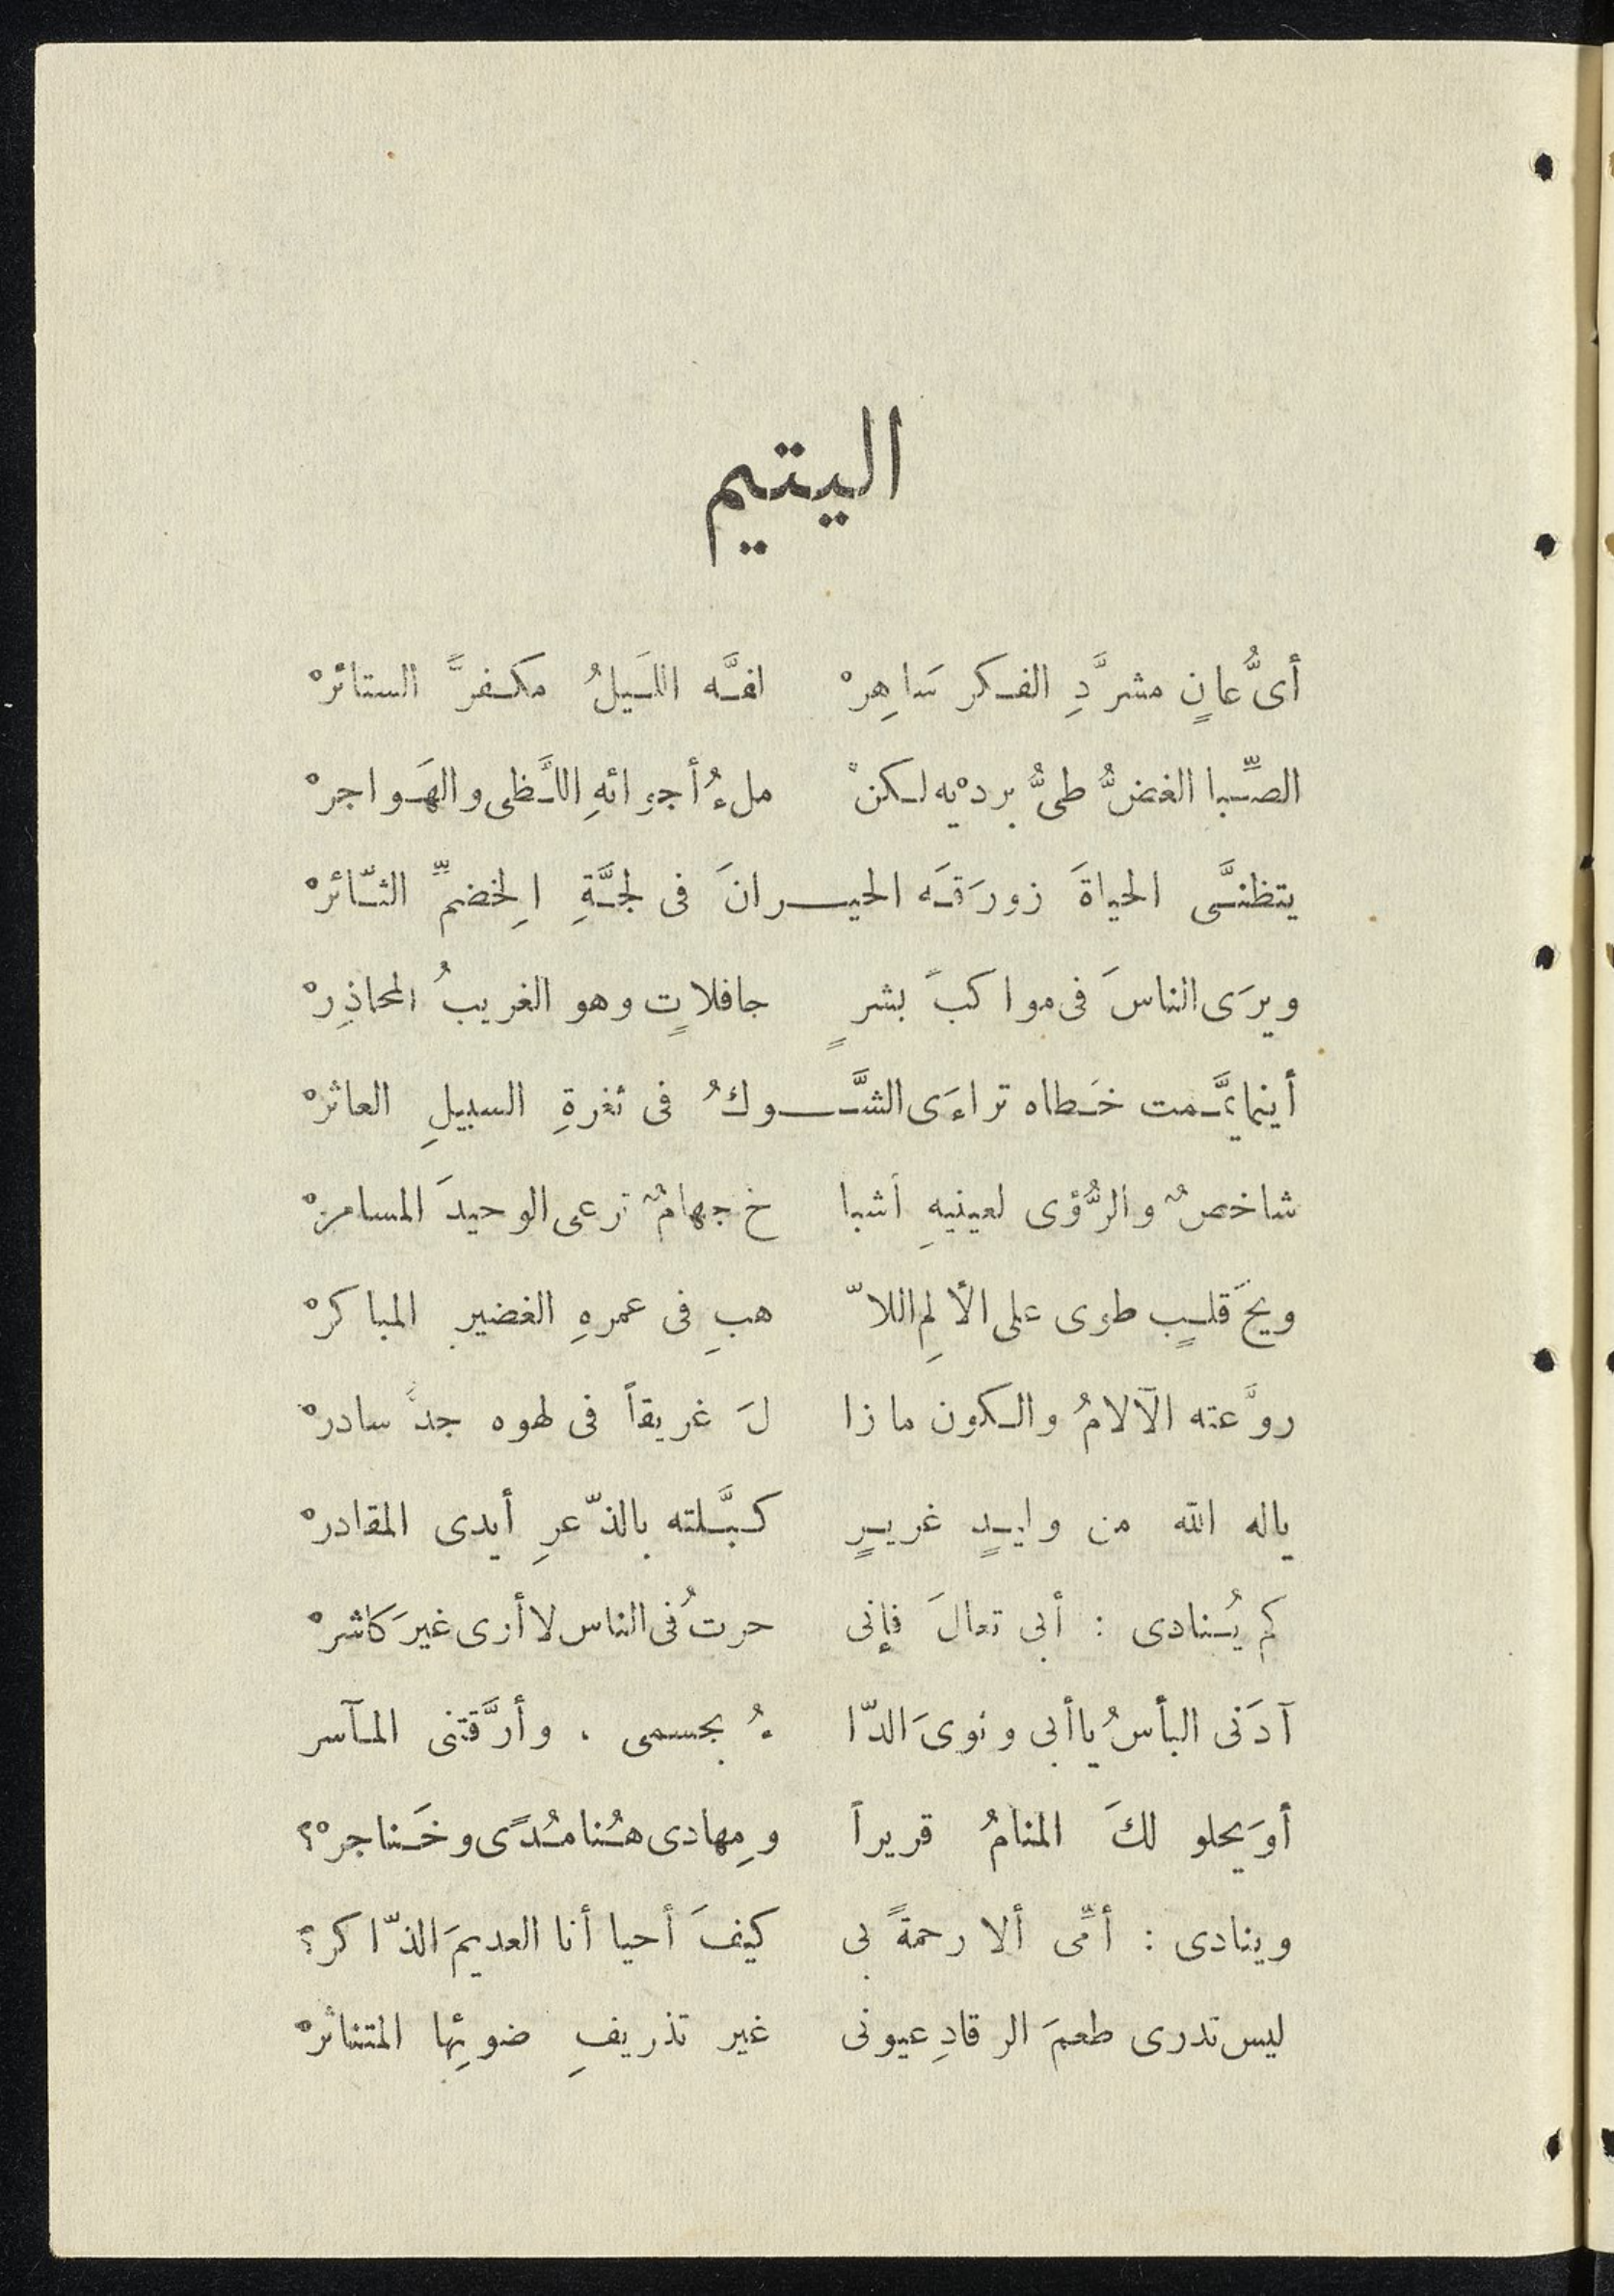 اليتيم
أىُّ عانٍ مشرَّدِ الفكر سَاهِرْ لفَّه اللَّيلُ مكفرَّ الستائرْ
الصِّبا الغضُّ طىُّ بردْيه لكنْ ملءُ أجوائهِ اللَّظى والهَواجرْ
يتظنَّى الحياةَ زورَقَه الحيرانَ فى لجَّةِ الِخضمِّ الثّائرْ
ويرَى الناسَ فى مواكبَ بشرٍ جافلاتٍ وهو الغريبُ المحاذِرْ
أينما يَّمت خَطاه تراءَى الشَّوكُ فى ثغرةِ السبيلِ العاثرْ
شاخصٌ والرُّؤى لعينيهِ أشبا خ جهامٌ ترعى الوحيدَ المسامرْ
ويحَ قلبٍ طوى على الألمِ اللاّ هبِ فى عمرهِ الغضير المباكرْ
روَّعته الآلامُ والكون ما زا لَ غريقاً فى لهوه جدَّ سادرْ
ياله الله من وليدٍ غريرٍ كبَّلته بالذّعرِ أيدى المقادرْ
كم يُنادى : أبى تعالَ فإنى حرتُ فى الناس لا أرى غيرَ كاشرْ
آدَنى البأسُ يا أبى ونوىَ الدّا ءُ بجسمى ، وأرَّقتنى المآسر
أوَ يحلو لكَ المنامُ قريراً ومِهادى هُنا مُدًى وخَناجرْ؟
وينادى : أمِّى ألا رحمةً بى كيفَ أحيا أنا العديمَ الذّاكر؟
ليس تدرى طعمَ الرقادِ عيونى غير تذريفِ ضوئِها المتناثرْ